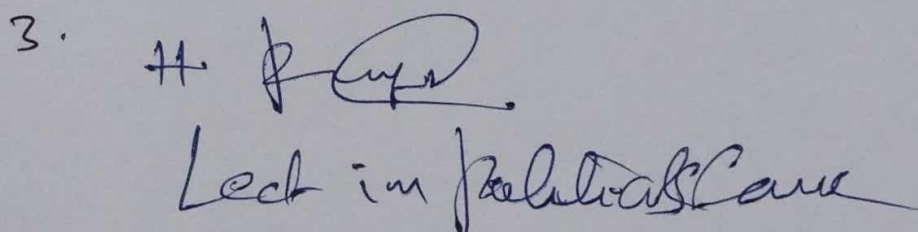 3.
H.
Lect in Political Science